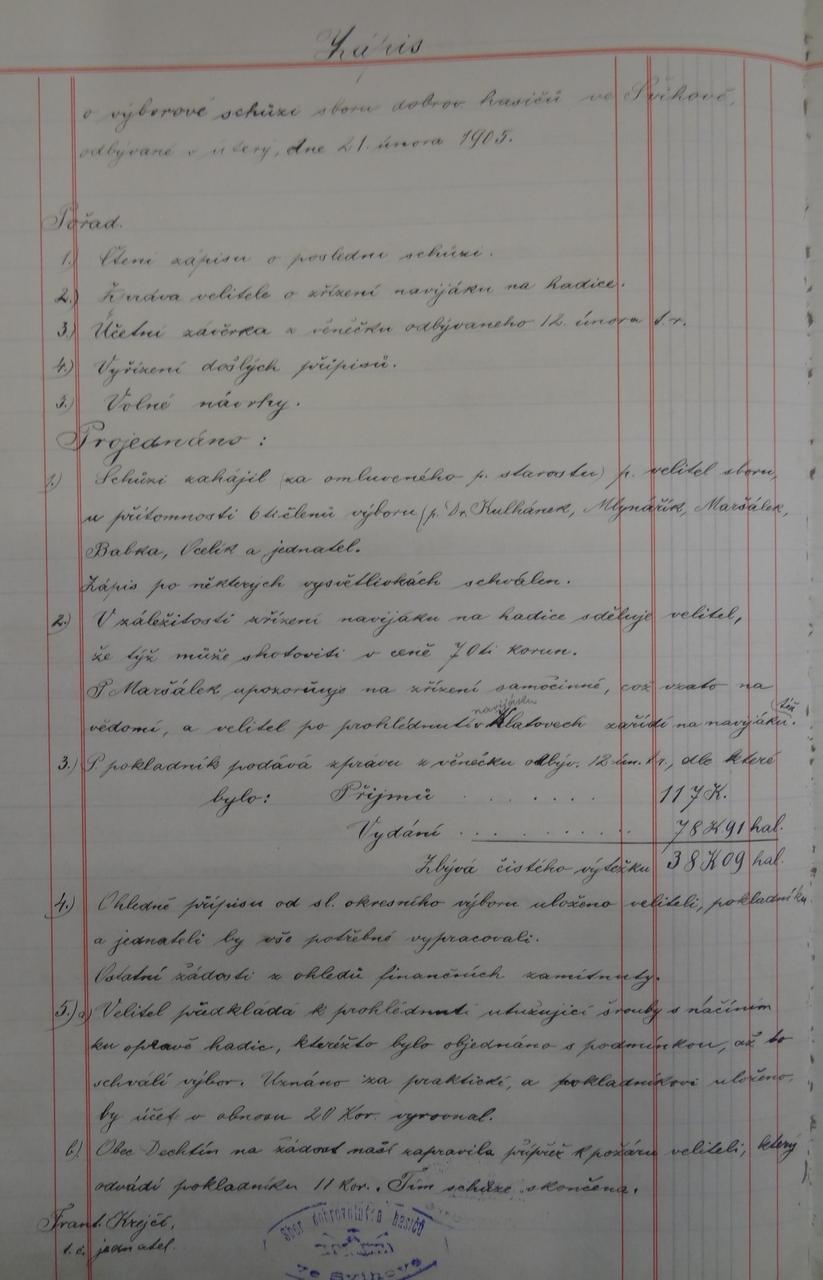 Zápis
o výborové schůzi sboru dobrov. hasičů ve Švihově,
odbývané v úterý, dne 21. února 1905.
Pořad.
1.) Čtení zápisu o poslední schůzi.
2.) Zpráva velitele o zřízení navijáku na hadice.
3.) Účetní závěrka z věnečku odbývaného 12. února t. r.
4.) Vyřízení došlých přípisů.
5.) Volné návrhy.
Projednáno:
1.) Schůzi zahájil (za omluveného p. starostu) p. velitel sboru,
u přítomnosti 6ti členů výboru (p. Dr. Kulhánek, Mlynářík, Maršálek,
Babka, Ocelík a jednatel.
Zápis po některých vysvětlivkách schválen.
2.) V záležitosti zřízení navijáku na hadice sděluje velitel,
že týž může shotoviti v ceně 70ti korun.
P. Maršálek upozorňuje na zřízení samočinné, což vzato na
vědomí, a velitel po prohlédnutí navijáku v Klatovech zařídí na navijáku též.
3.) P. pokladník podává zprávu z věnečku odbýv. 12 ún. t. r., dle které
bylo: Příjmů . . . . . . . 117 K.
Vydání . . . . . . . . . . 78 K 91 hal.
Zbývá čistého výtěžku 38 K 09 hal.
4.) Ohledně přípisu od sl. okresního výboru uloženo veliteli, pokladníku
a jednateli by vše potřebné vypracovali.
Ostatní žádosti z ohledů finančních zamítnuty.
5.) a) Velitel předkládá k prohlédnutí utužující šrouby s náčiním
ku opravě hadic, kteréžto bylo objednáno s podmínkou, až to
schválí výbor. Uznáno za praktické, a pokladníkovi uloženo,
by účet v obnosu 20 Kor. vyrovnal.
b) Obec Dechtín na žádost naši zapravila přípřež k požáru veliteli, který
odvádí pokladníku 11 kor. Tím schůze skončena.
Frant. Krejčí,
t. č. jednatel.
Sbor dobrovolných hasičů
ve Švihově